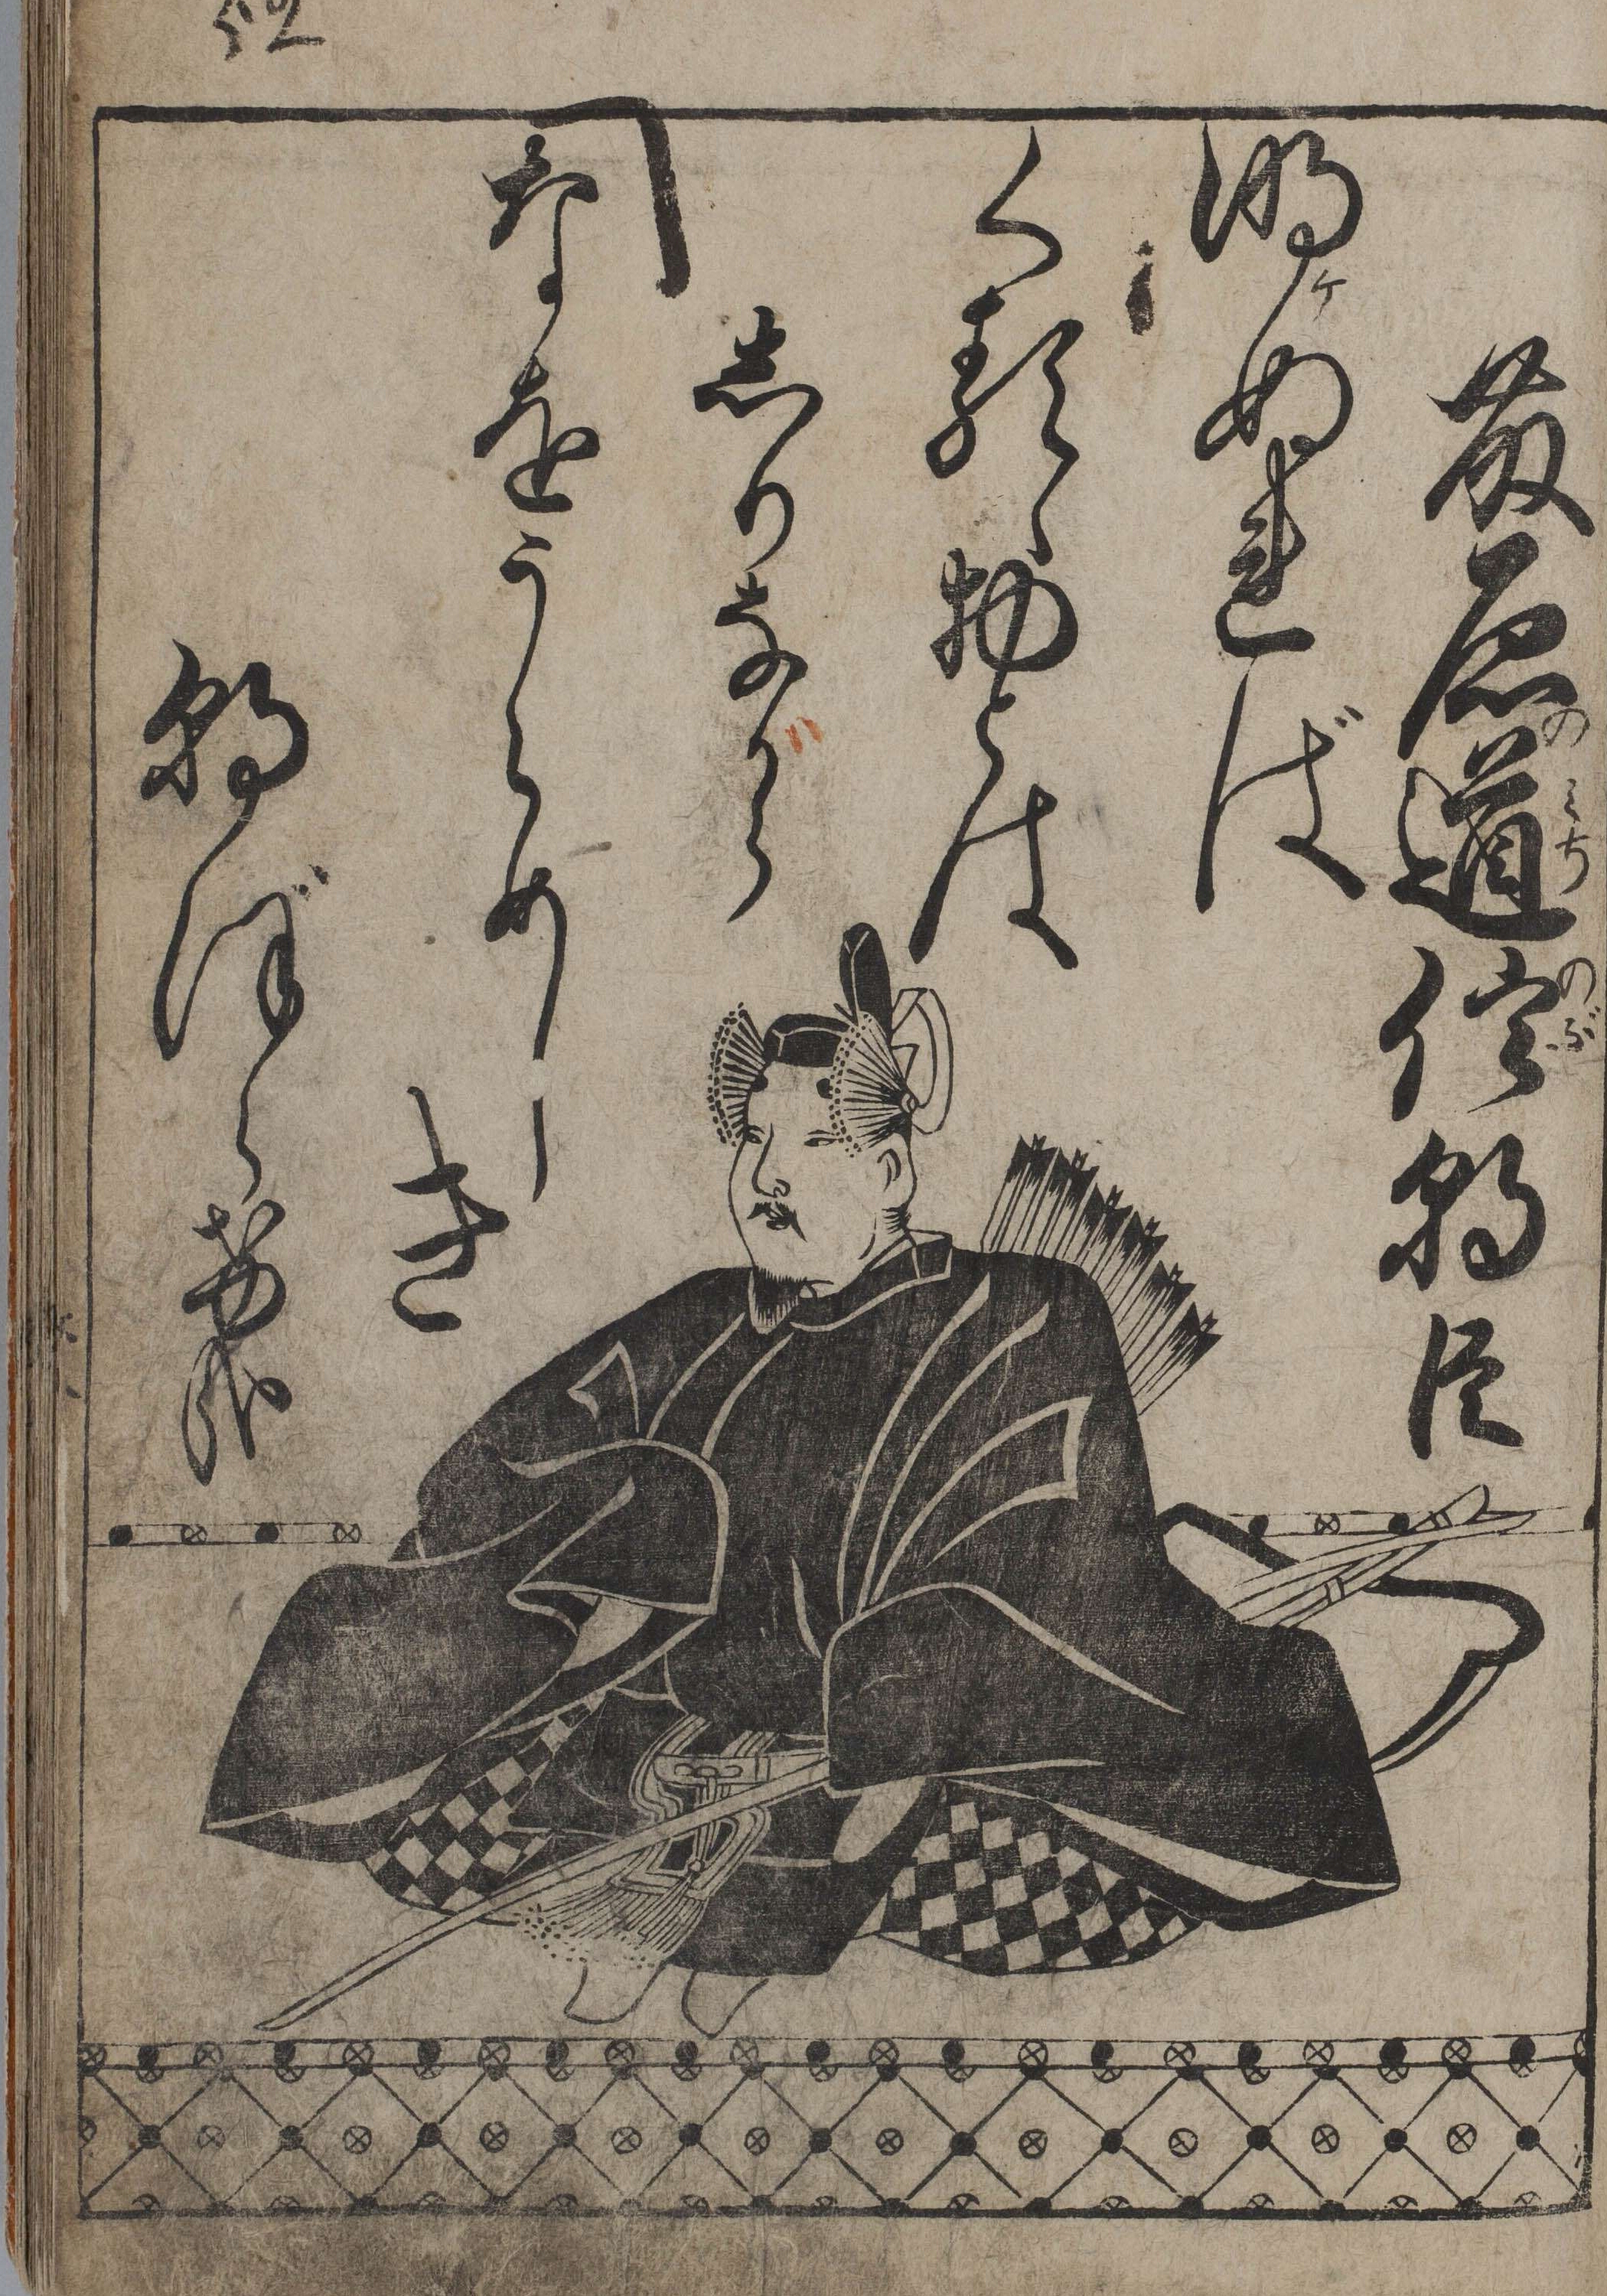 藤原道信朝臣
明ぬれば
くるゝ物とは
しりながら
なをうらめし
き
朝ぼらけ哉
52